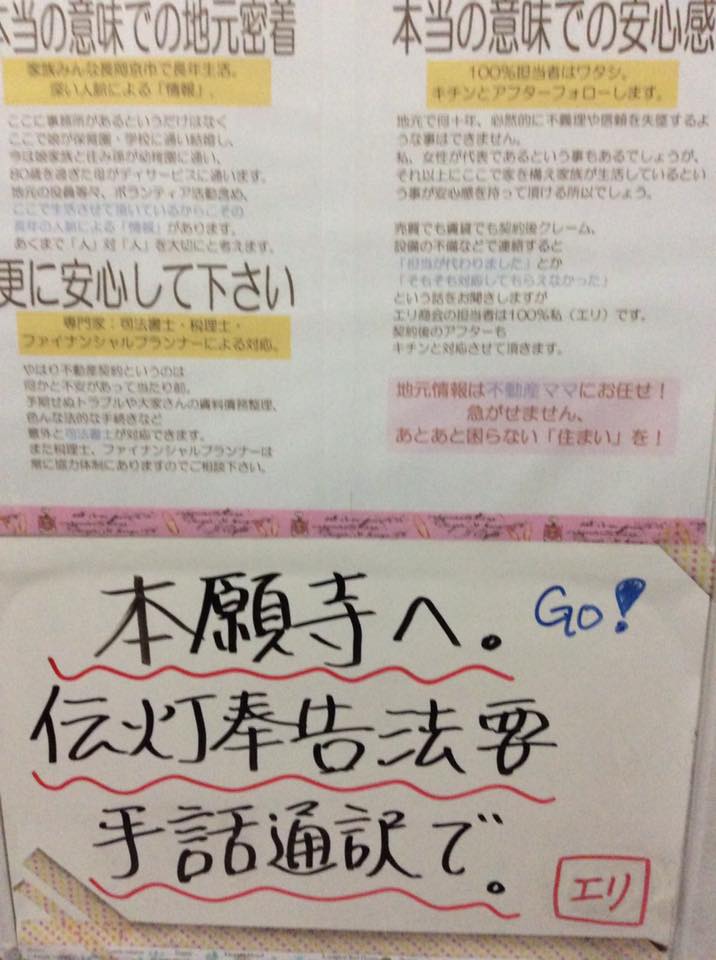 本当の意味での地元密着
家族みんな長岡京市で長年生活。
深い人脈による「情報」。
ここに事務所があるというだけはなく
ここで娘が保育園・学校に通い結婚し、
今は娘家族と住み孫が幼稚園に通い、
80歳を過ぎた母がデイサービスに通います。
地元の役員等々、ボランティア活動含め、
ここで生活させて頂いているからこその
長年の人脈による「情報」があります。
あくまで「人」対「人」を大切にと考えます。
更に安心して下さい
専門家:司法書士・税理士・
ファイナンシャルプランナーによる対応。
やはり不動産契約というのは
何かと不安があって当たり前。
予期せぬトラブルや大家さんの賃料債務整理、
色んな法的な手続きなど
意外と司法書士が対応できます。
また税理士、ファイナンシャルプランナーは
常に協力体制にありますのでご相談下さい。
本当の意味での安心感
100%担当者はワタシ。
キチンとアフターフォローします。
地元で何十年、必然的に不義理や信頼を失墜するよ
うな事はできません。
私、女性が代表であるという事もあるでしょうが、
それ以上にここで家を構え家族が生活しているとい
う事が安心感を持って頂ける所以でしょう。
売買でも賃貸でも契約後クレーム、
設備の不備などで連絡すると
「担当が代わりました」とか
「そもそも対応してもらえなかった」
という話をお聞きしますが
エリ商会の担当者は100%私(エリ)です。
契約後のアフターも
キチンと対応させて頂きます。
地元情報は不動産ママにお任せ!
急がせません、
あとあと困らない「住まい」を!
本願寺へ。 Go!
伝灯奉告法要
手話通訳で。
エリ